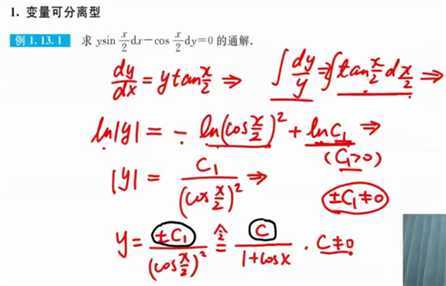 1. 变量可分离型
例 1.13.1 求 ysin x/2 dx-cos x/2 dy=0 的通解.
dy/dx = y tan x/2 ⇒ ∫ dy/y = ∫ tan x/2 dx/2 ⇒
ln|y| = - ln(cos x/2)² + ln C₁ ⇒
(C₁>0)
|y| = C₁/(cos x/2)² ⇒
±C₁≠0
y = ±C₁/(cos x/2)² ≙ C/(1+cosx) . C≠0